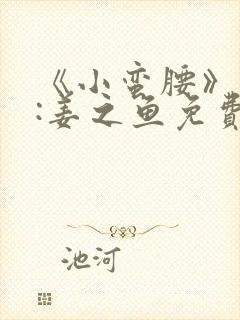 《小蛮腰》
:姜之鱼免费
池河